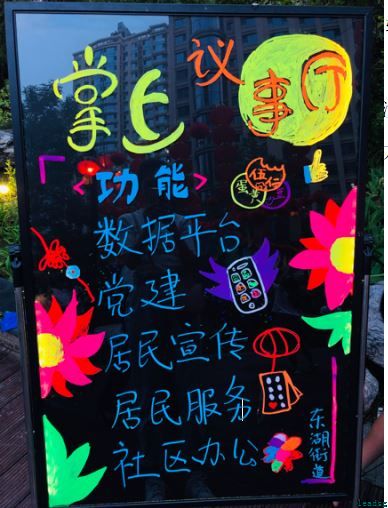 掌上议事厅
<功能>
数据平台
党建
居民宣传
居民服务
社区办公
东湖街道